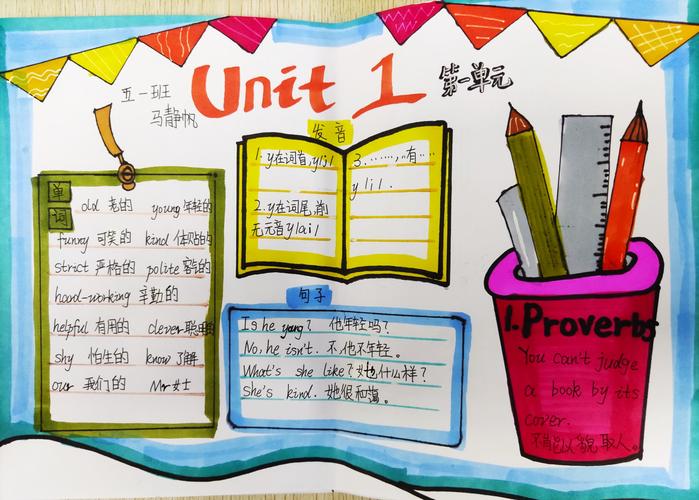 Unit 1
第一单元
五一班
马静帆
单
词
old 老的 young 年轻的
funny 可笑的 kind 体贴的
strict 严格的 polite 客的
hoad-working 辛勤的
helpful 有用的 clever 聪明的
shy 怕生的 know 了解
our 我们的 Mr 女士
发音
1. y在词首, y
2. y在词尾,前
无元音 y
3. ……,有…
y
句子
Is he young? 他年轻吗?
No, he isn't. 不,他不年轻。
What's she like? 她什么样?
She's kind. 她很和蔼。
1. Proverbs
You can't judge
a book by its
cover.
不能以貌取人。